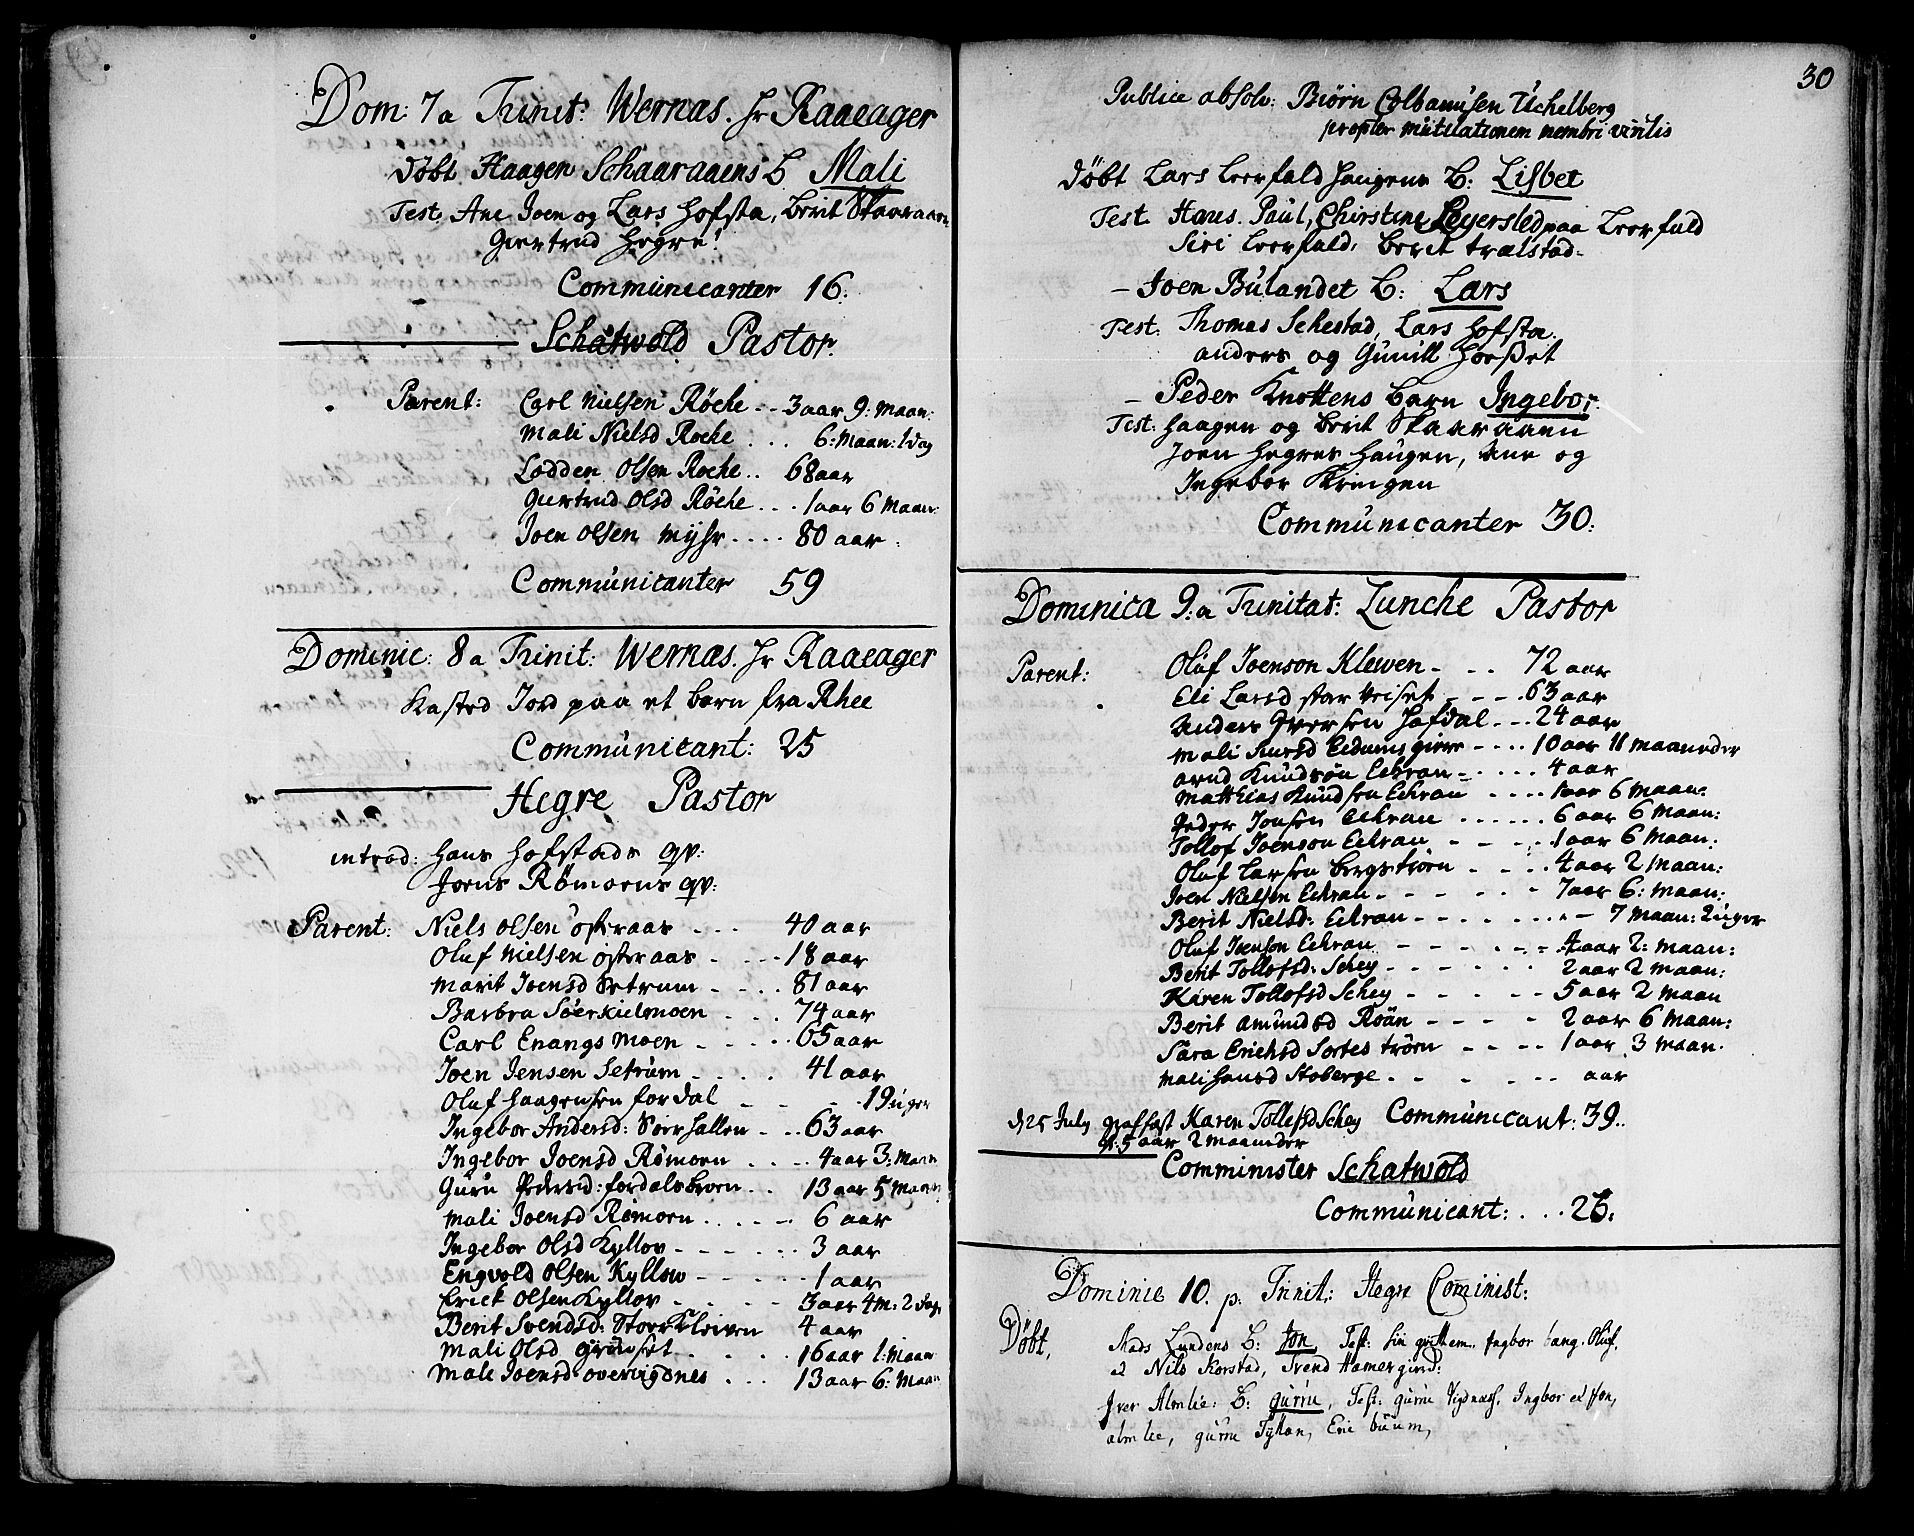 Dom: 7a Trinit: Wernæs. Hr Raaeager
Døbt Haagen Schaaraaens B Mali
Test. Ane Joen og Lars Hofsta, Berit Skaaraaen
Giertrud Hegre
Communicanter 16:
Schatwold Pastor.
Parent: Carl Nielsen Røche -- 3 aar 9: Maan:
Mali Nielsd Røche ... 6: Maan: 1 dag
Lodden Olsen Røche .. 68 aar
Giertrud Olsd Røche ... 1 aar 6 Maan:
Joen Olsen Myhr .... 80 aar
Communicanter 59
Dominic: 8a Trinit: Wernæs. Hr Raaeager
Kasted Jord paa et barn fra Rhee
Communicant: 25
Hegre Pastor
introd: Hans Hofstads qv:
Joens Rømoens qv:
Parent: Niels Olsen østeraas --- 40 aar
Oluf Nielsen østeraas - --- 18 aar
Marit Joensd Setrum - -- . 81 aar
Barbra Søerkielmoen - . . 74 aar
Carl Enangs Moen - - - - - 65 aar
Joen Jensen Setrum - - - . 41 aar
Oluf Haagensen fordal - - - - 19 uger
Ingebor Andersd: Soerhallen - -- 63 aar
Ingebor Joensd Rømoen . . . -. 4 aar 3: Maan
Guru Pedersd: fordalsbroen . . 13 aar 5 Maan
Mali Joensd Rømoen . . . - -. 6 aar
Ingebor Olsd Kyllov - - - - . . 3 aar
Engvold Olsen Kyllow - - - - - 1 aar
Erick Olsen Kyllov - - - - - 3 aar 4 M: 2 dage
Berit Svendsd: Stoerkleiven 4 aar
Mali Olsd grünset . . . . 16 aar 1: Maan
Male Joensd overvigdnes . . . 13 aar 6: Maan
30
Publice absolv: Biørn Colbanusen Uchelberg
propter mutilationem membri virilis
Døbt Lars Leerfald haugens B: Lisbet
Test. Hans. Paul, Chirstine Legersled paa Leerfald
Siri Leerfald, Berit trælstad-
- Joen Bulandet B: Lars
Test: Thomas Schestad, Lars Hofsta
anders og Gunill Hoeset
- Peder Knottens barn Ingebor.
Test: Haagen og Berit Skaaraaen
Joen Hegres Haugen, Ane og
Ingebor Kringen
Communicanter 30:
Dominica 9:a Trinitat: Lunche Pastor
Parent: Oluf Joenson Klewen - . - 72 aar
Eli Larsd Storvriset - - - . 63 aar
Anders Iversen Hofdal -- - . 24 aar
Mali Sursd Eidumsgiere - - . . 10 aar 11 maaneder
arnd Knudsøn Eckran - - . . . . 4 aar
Matthias Knudsen Eckran . . . . 1 aar 6 Maan:
Peder Jonsen Eckran . . . . . . 6 aar 6 Maan:
Tollof Joenson Eckran - - - . . 1 aar 6 Maan:
Oluf Larsen bergstrøen - . . . 4 aar 2 Maan:
Joen Nielsen Eckran - - - - - 7 aar 6: Maan:
Berit Nielsd: Eckran - - . - . . . - 7 Maan: 2 uger
Oluf Joenson Eckran - - - . - - 4 aar 2: Maan:
Berit Tollofsd: Schey - - - . . - 2 aar 2 maan:
Karen Tollofsd Schey - - - - - 5 aar 2 Maan
Berit Amundsd Roän - - - - 2 aar 6 Maan:
Sara Erichsd Sortestrøen - - - - 1 aar 3 Maan.
Mali Hansd Stoberge . . - - -- aar
d 25 July graffæst Karen Tollefsd Schey Communicant: 39..
gl: 5 aar 2 maaneder
Comminister Schatwold
Communicant: . . . 26:
Dominic 10. p. Trinit: Hegre Cominist:
Døbt, Mads Lundens B: Jon, Test: Siri grettem, Ingbor bang. Oluf,
2 Nils Korstad, Svend Hamer gierd:
Iver Almlie: B: gurru, Test: gurru Vigdnæss, Ingbor ed Hon,
almlie, gurru Tyllan, Eric buum,